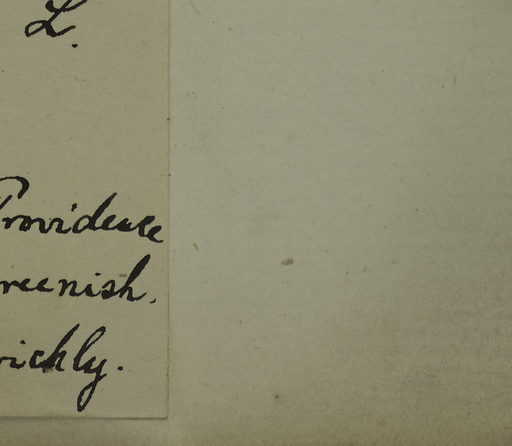 L.
Providence
reenish.
rickly.